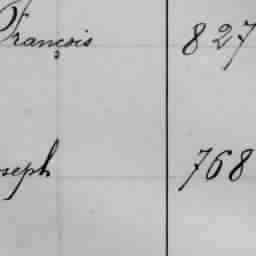 François 827
oseph 768